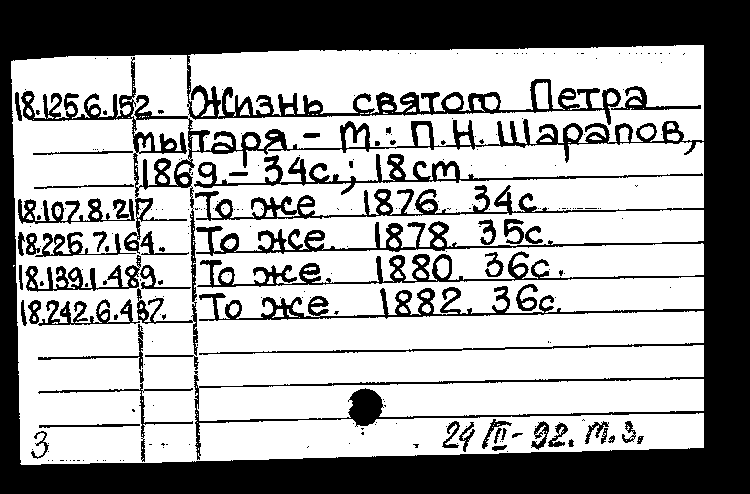 18.125.6.152. Жизнь святого Петра
мытаря. - М.: П.Н. Шарапов,
1869. - 34с.; 18cm.
18.107.8.217 То же 1876. 34с.
18.225.7.164. То же. 1878. 35с.
18.139.1.489. То же. 1880. 36с.
18.242.6.437. То же. 1882. 36с.
3 29/II-92. м.з.